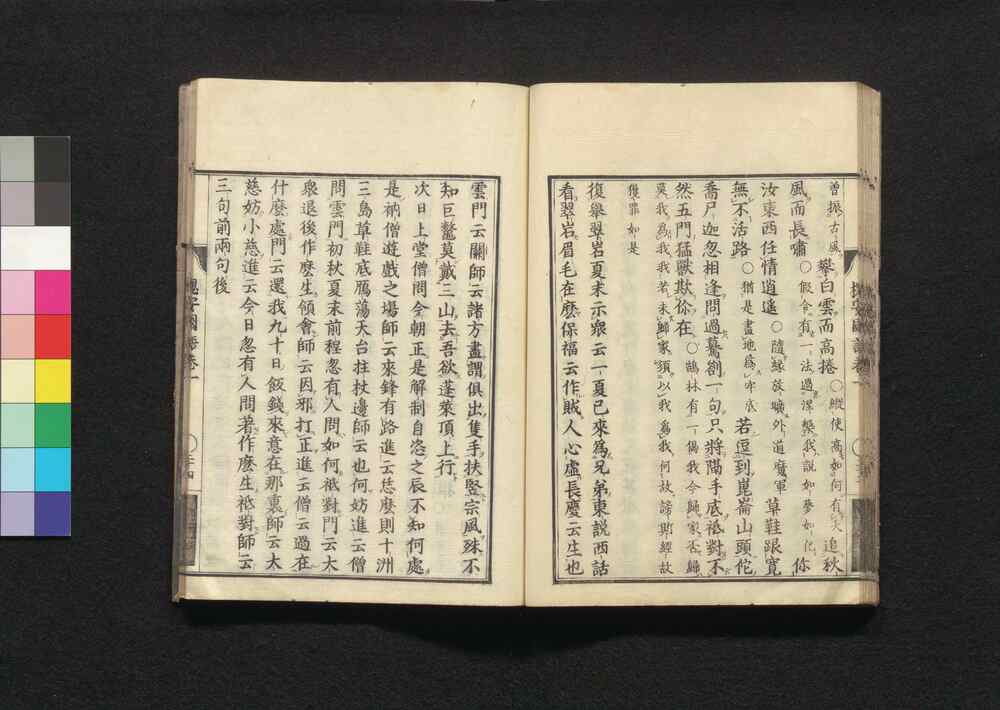 曽振古風 攀白雲而高捲 ○縱使高如何有天 追秋
風而長嘯 ○假令有一法過涅槃我說如夢如化 你
汝東西任情逍遙 ○隨緣放曠外道魔軍 草鞋跟寬
無不活路 ○猶是盡地爲牢底 若逗到崑崙山頭佗
喬尸迦忽相逢問過驀劄一句只將隔手底祗對不
然五門猛獸欺徐在 ○鵠林有一偈我今歸家不歸
莫我爲我我若未歸家須以我爲我何故諦斯經故
獲罪如是
復舉翠岩夏末示衆云一夏已來爲兄弟東說西話
看翠岩眉毛在麼保福云作賊人心虛長慶云生也
雲門云關師云諸方盡謂俱出隻手扶竪宗風殊不
知巨鼇莫戴三山去吾欲蓬萊頂上行
次日上堂僧問今朝正是解制自恣之辰不知何處
是衲僧遊戲之場師云來鋒有路進云恁麼則十洲
三島草鞋底鴈蕩天台拄杖邊師云也何妨進云僧
問雲門初秋夏末前程忽有人問如何祗對門云大
衆退後作麼生領會師云因邪打正進云僧云過在
什麼處門云還我九十日飯錢來意在那裏師云太
慈妨小慈進云今日忽有人問著作麼生祗對師云
三句前兩句後
國語卷一